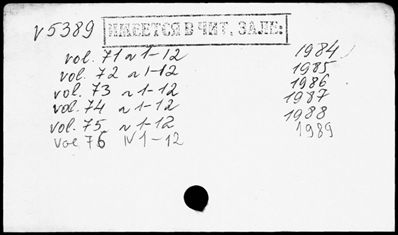 v5389 ИМЕЕТСЯ В ЧИТ. ЗАЛЕ:
vol. 71 N 1-12 1984
vol. 72 N 1-12 1985
vol. 73 N 1-12 1986
vol. 74 N 1-12 1987
vol. 75 N 1-12 1988
vol. 76 N 1-12 1989